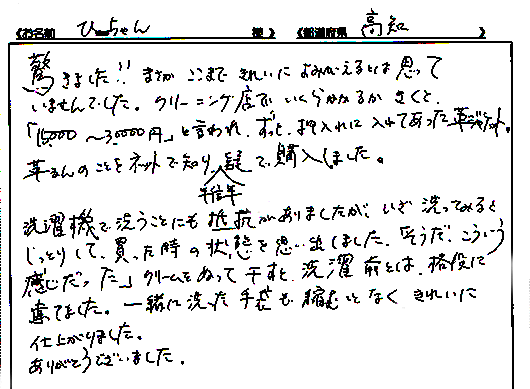 《お名前 ひーちゃん 様》 《都道府県 高知 》
驚きました!! まさか ここまで きれいに よみがえるとは思って
いませんでした。クリーニング店で いくらかかるか きくと、
「15,000～30,000円」と言われ、ずっと、押入れに 入れてあった革ジャケット。
革るんのことをネットで知り、半信半疑で購入しました。
洗濯機で洗うことにも 抵抗がありましたが、いざ 洗ってみると
じっとりして、買った時の状態を思い出しました。「そうだ、こういう
感じだった」クリームをぬって干すと、洗濯前とは、格段に
違てました。一緒に洗った手袋も縮むことなくきれいに
仕上がりました。
ありがとうございました。